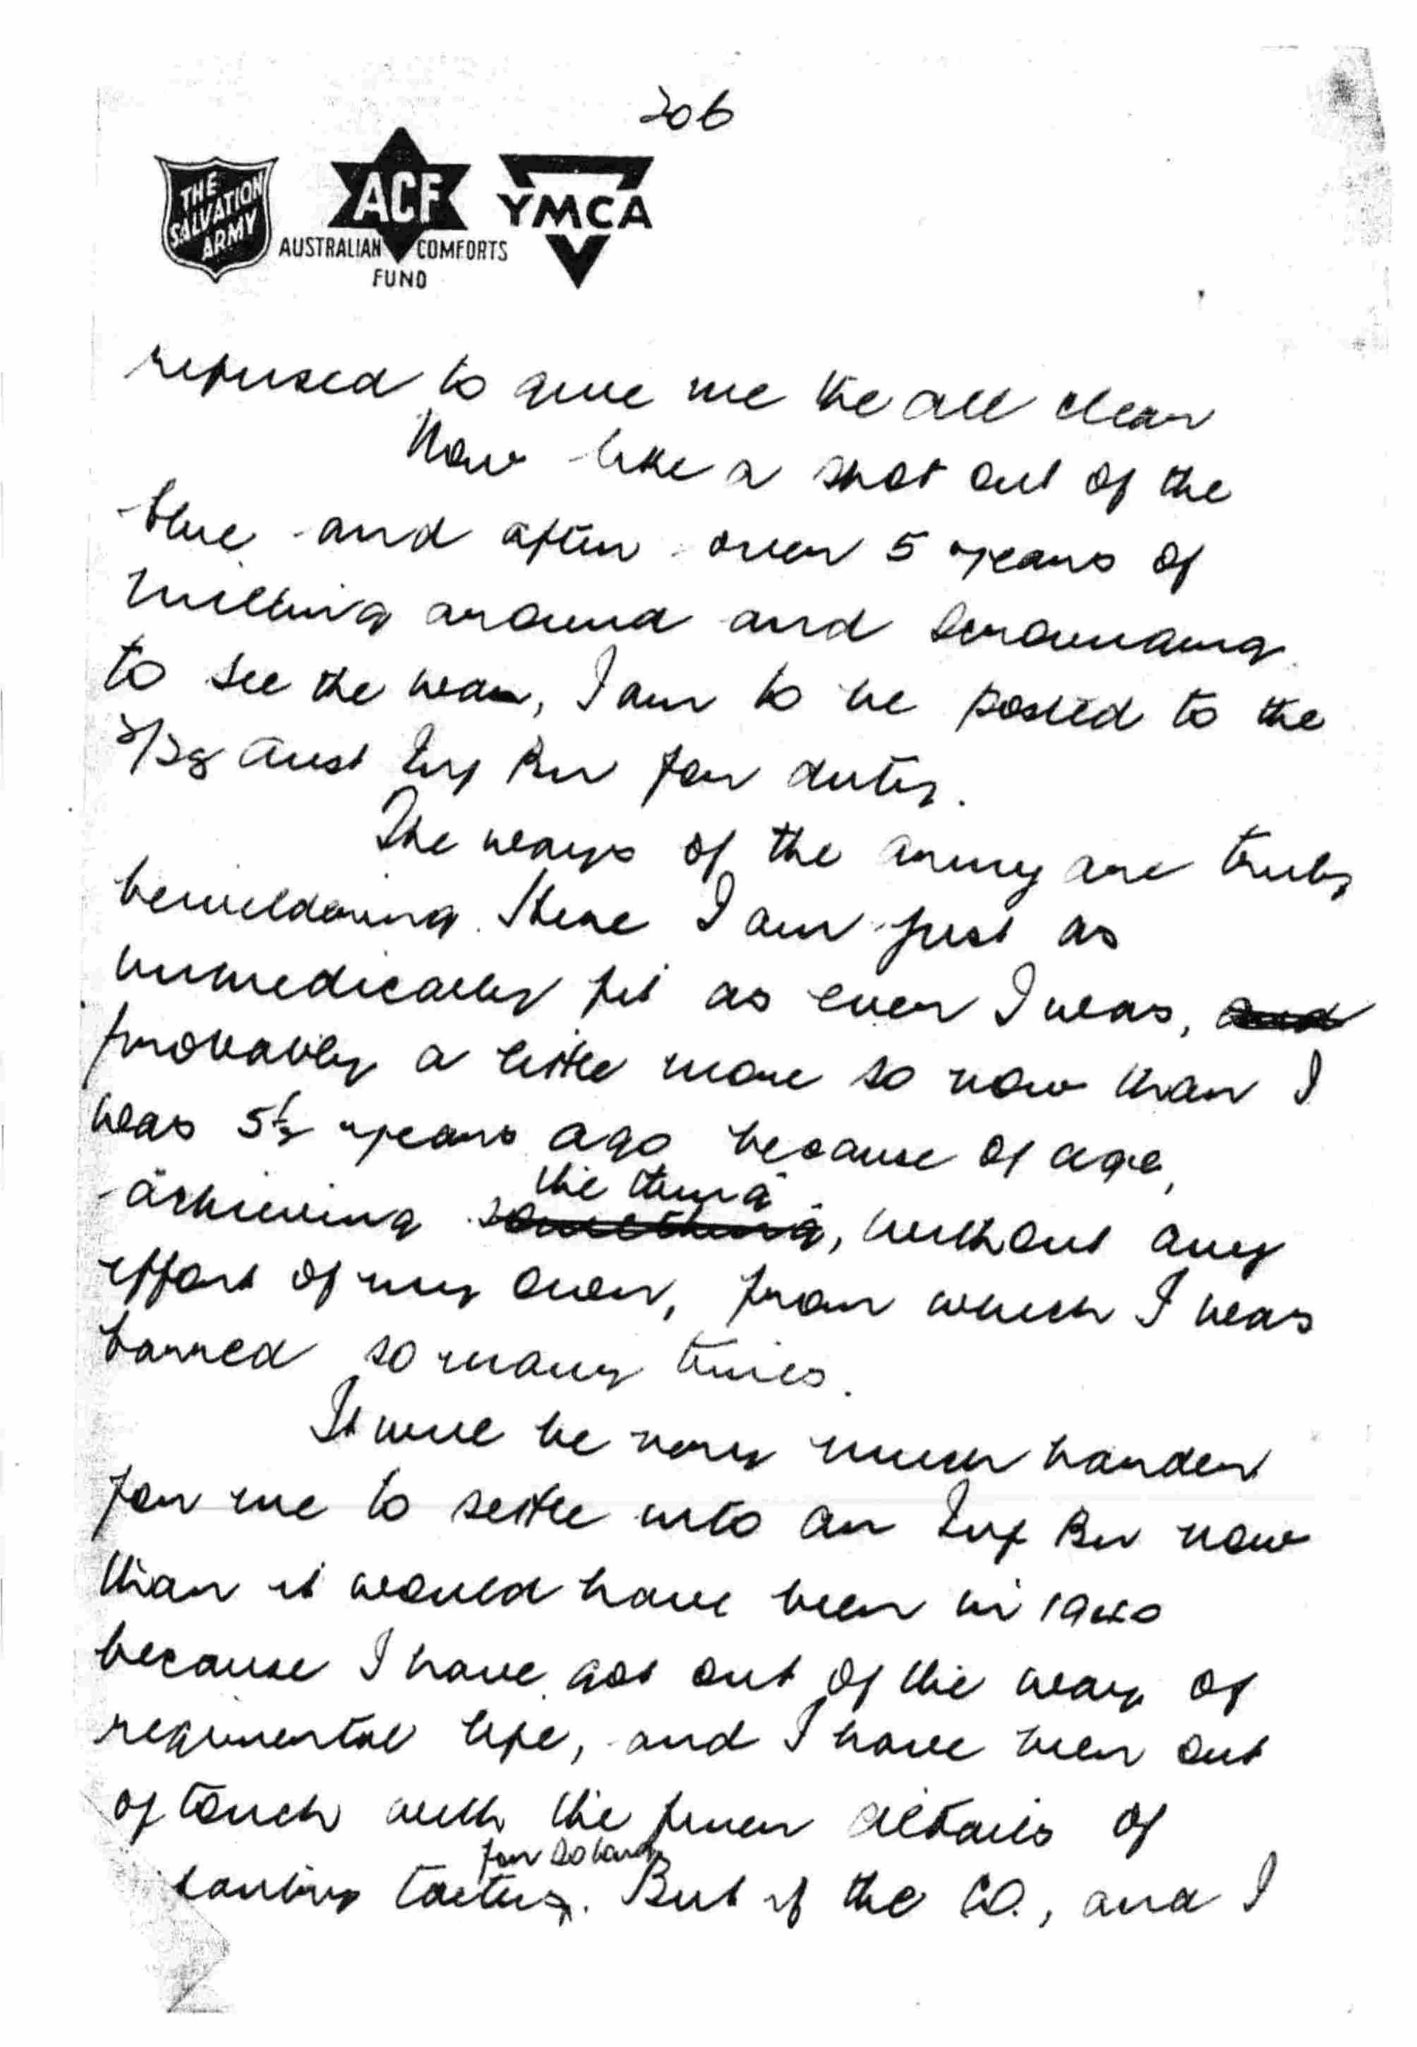 206
THE SALVATION ARMY
ACF
AUSTRALIAN COMFORTS FUND
YMCA
refused to give me the all clear
Now like a shot out of the
blue and after over 5 years of
milling around and scrounging
to see the war, I am to be posted to the
2/28 Aust Inf Bn for duty.
The ways of the army are truly
bewildering. Here I am just as
unmedically fit as ever I was, and
probably a little more so now than I
was 5½ years ago because of age,
achieving something, the thing, without any
effort of my own, from which I was
barred so many times.
It will be very much harder
for me to settle into an Inf Bn now
than it would have been in 1940
because I have got out of the way of
regimental life, and I have been out
of touch with the finer details of
tactics for so long. But if the CO., and I